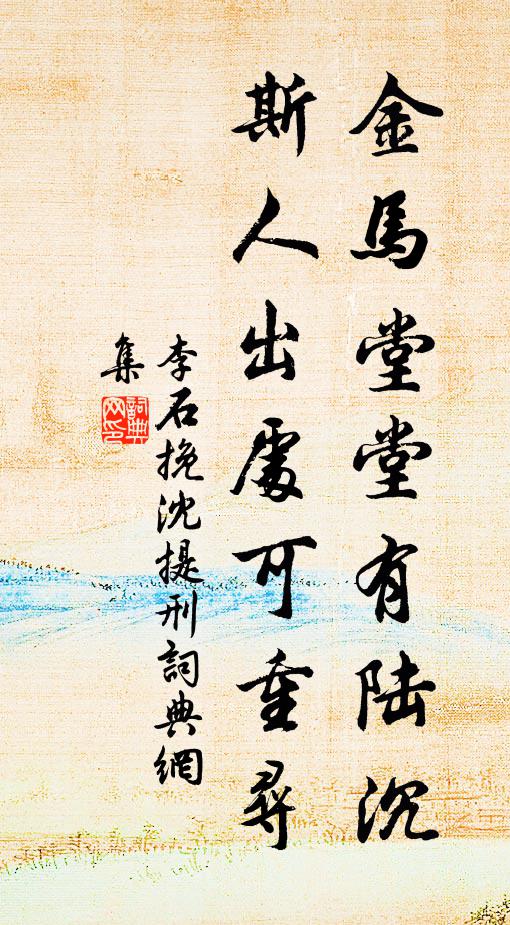 金馬堂堂有陆沉
斯人出處可重尋
李石挽沈提刑詞典網
集
詞典网印